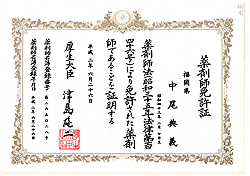 薬剤師免許証
福岡県
中尾典義
薬剤師法昭和三十五年法律第百
四十六号により免許された薬剤
師であることを証明する
平成二年六月二十六日
厚生大臣 津島雄二
薬剤師名簿登録番号
薬剤師名簿登録年月日 平成二年六月二十六日